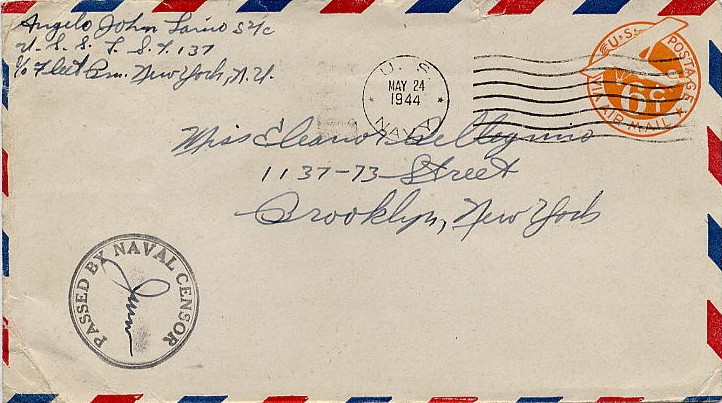 Angelo John Laino S2/c
U.S.S. L.S.T. 137
c/o Fleet P.m. New York, N.Y.
U.S.
MAY 24
1944
NAVY
U.S. POSTAGE
6¢
VIA AIR MAIL
Miss Eleanor
1137-73-Street
Brooklyn, New York
PASSED BY NAVAL CENSOR